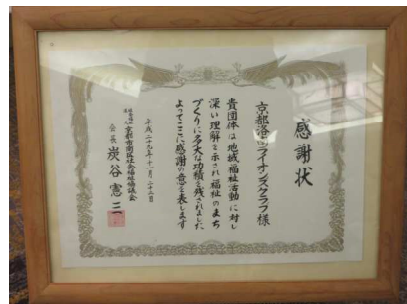 感謝状
京都洛南ライオンズクラブ様
貴団体は地域福祉活動に対し
深い理解を示され福祉のまち
づくりに多大な功績を残されました
よってここに感謝の意を表します
平成二十九年十一月二十二日
京都市南区社会福祉協議会
会長 炭谷憲二